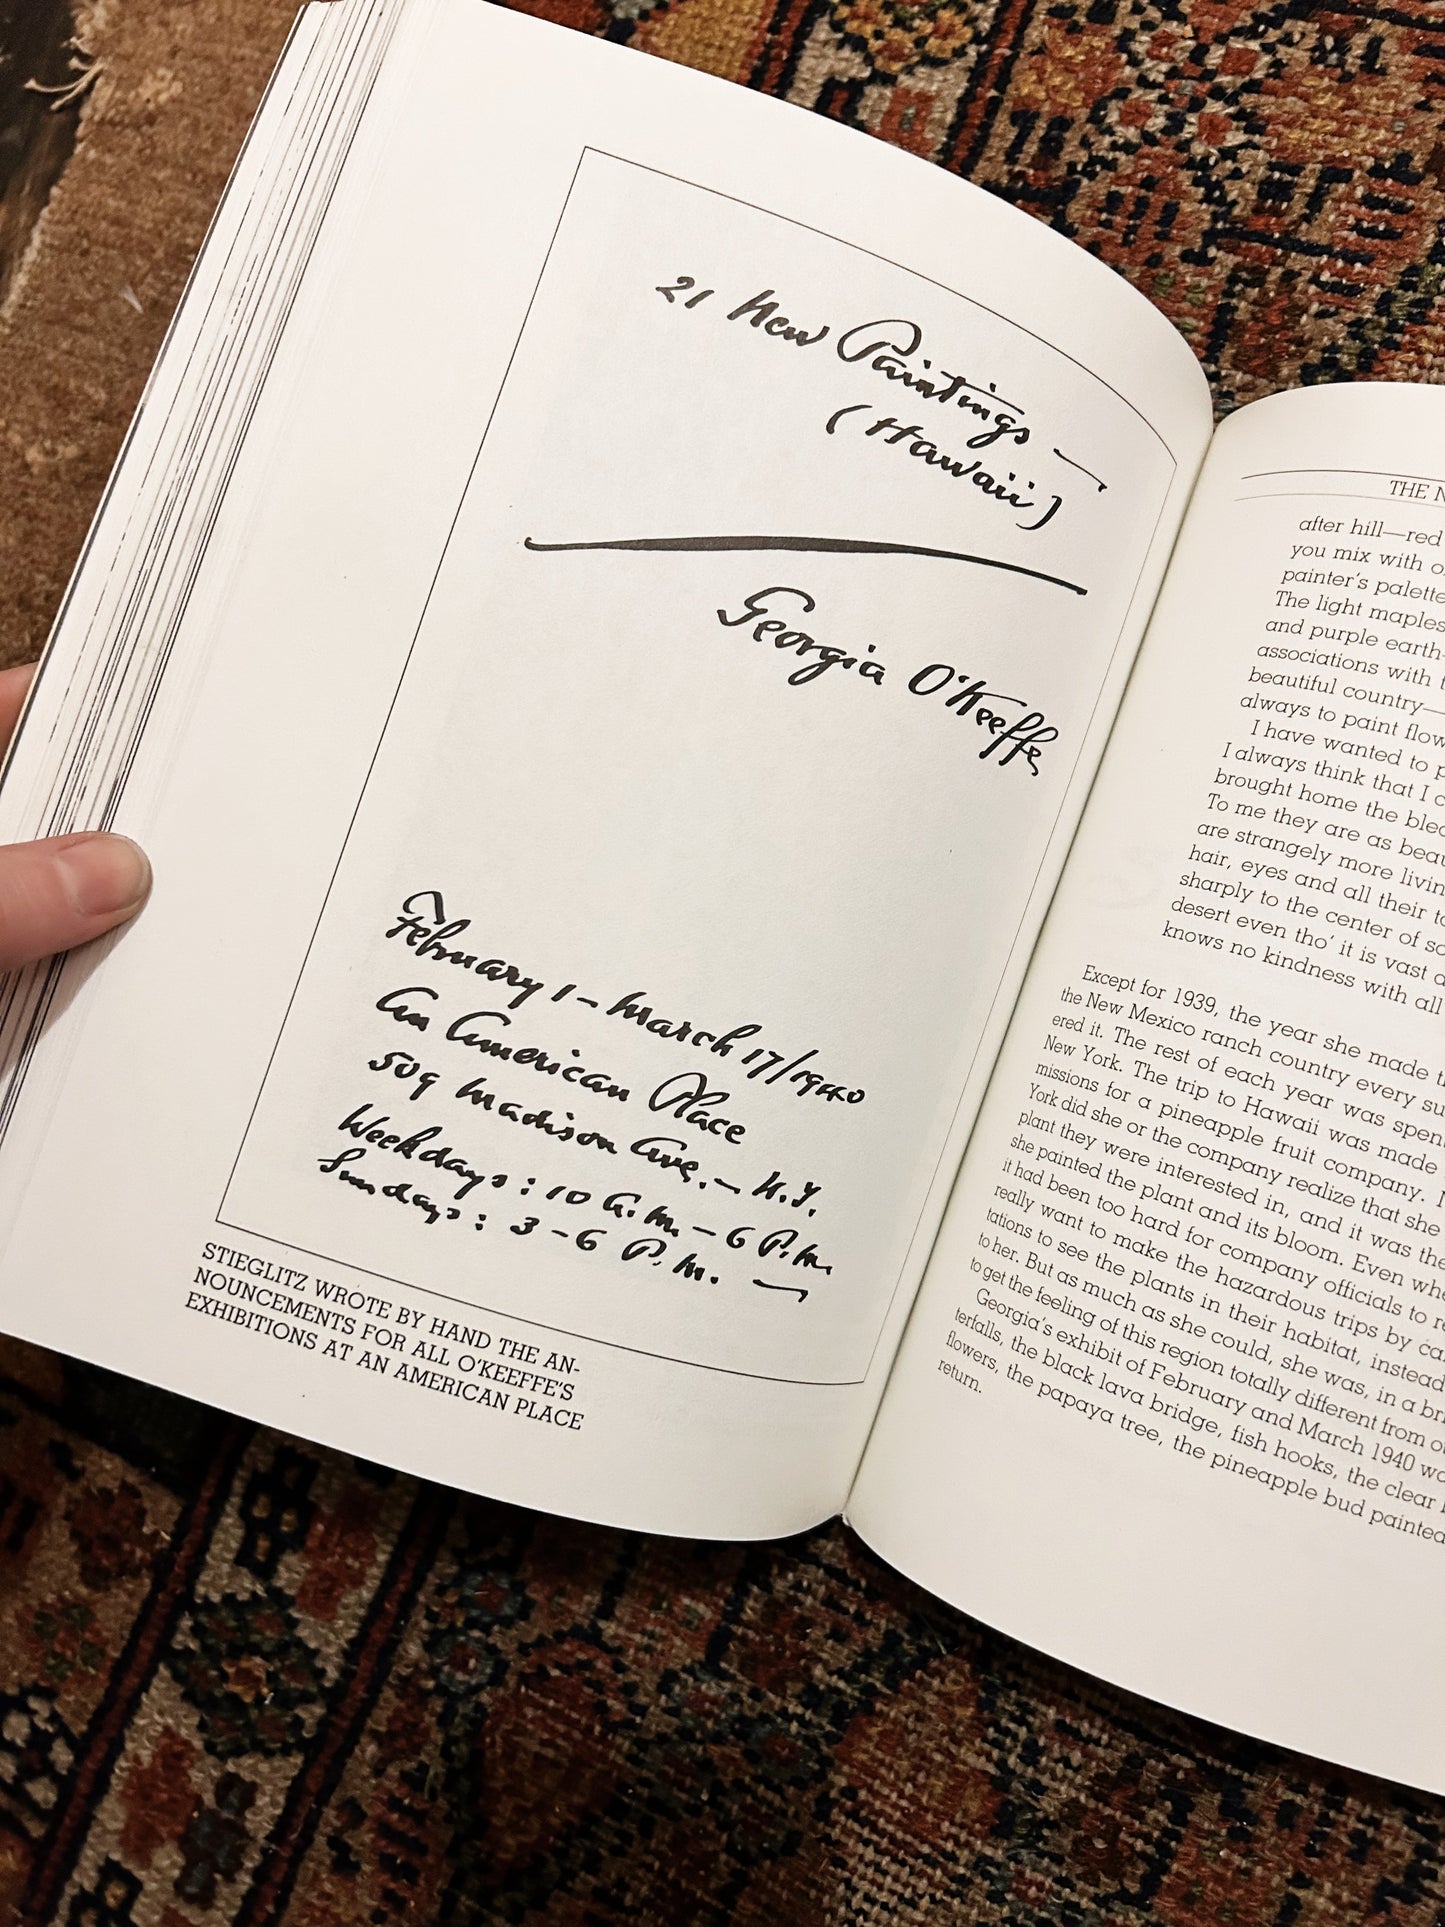 21 New Paintings —
(Hawaii)
Georgia O'Keeffe
February 1 – March 17/1940
An American Place
509 Madison Ave. – N.Y.
Weekdays: 10 A.M. – 6 P.M.
Sundays: 3 – 6 P.M. —
STIEGLITZ WROTE BY HAND THE AN-
NOUNCEMENTS FOR ALL O'KEEFFE'S
EXHIBITIONS AT AN AMERICAN PLACE
THE
after hill—red
you mix with
painter's palette
The light maples
and purple earth—
associations with
beautiful country—
always to paint
I have wanted to
I always think that I
brought home the
To me they are as
are strangely more
hair, eyes and all their
sharply to the center of
desert even tho' it is vast
knows no kindness with all
Except for 1939, the year she made
the New Mexico ranch country every
ered it. The rest of each year was spent
New York. The trip to Hawaii was made
missions for a pineapple fruit company.
York did she or the company realize that she
plant they were interested in, and it was
she painted the plant and its bloom. Even
it had been too hard for company officials to
really want to make the hazardous trips by
tations to see the plants in their habitat, instead
to her. But as much as she could, she was, in a
to get the feeling of this region totally different from
Georgia's exhibit of February and March 1940
terfalls, the black lava bridge, fish hooks, the clear
flowers, the papaya tree, the pineapple bud painted
return.